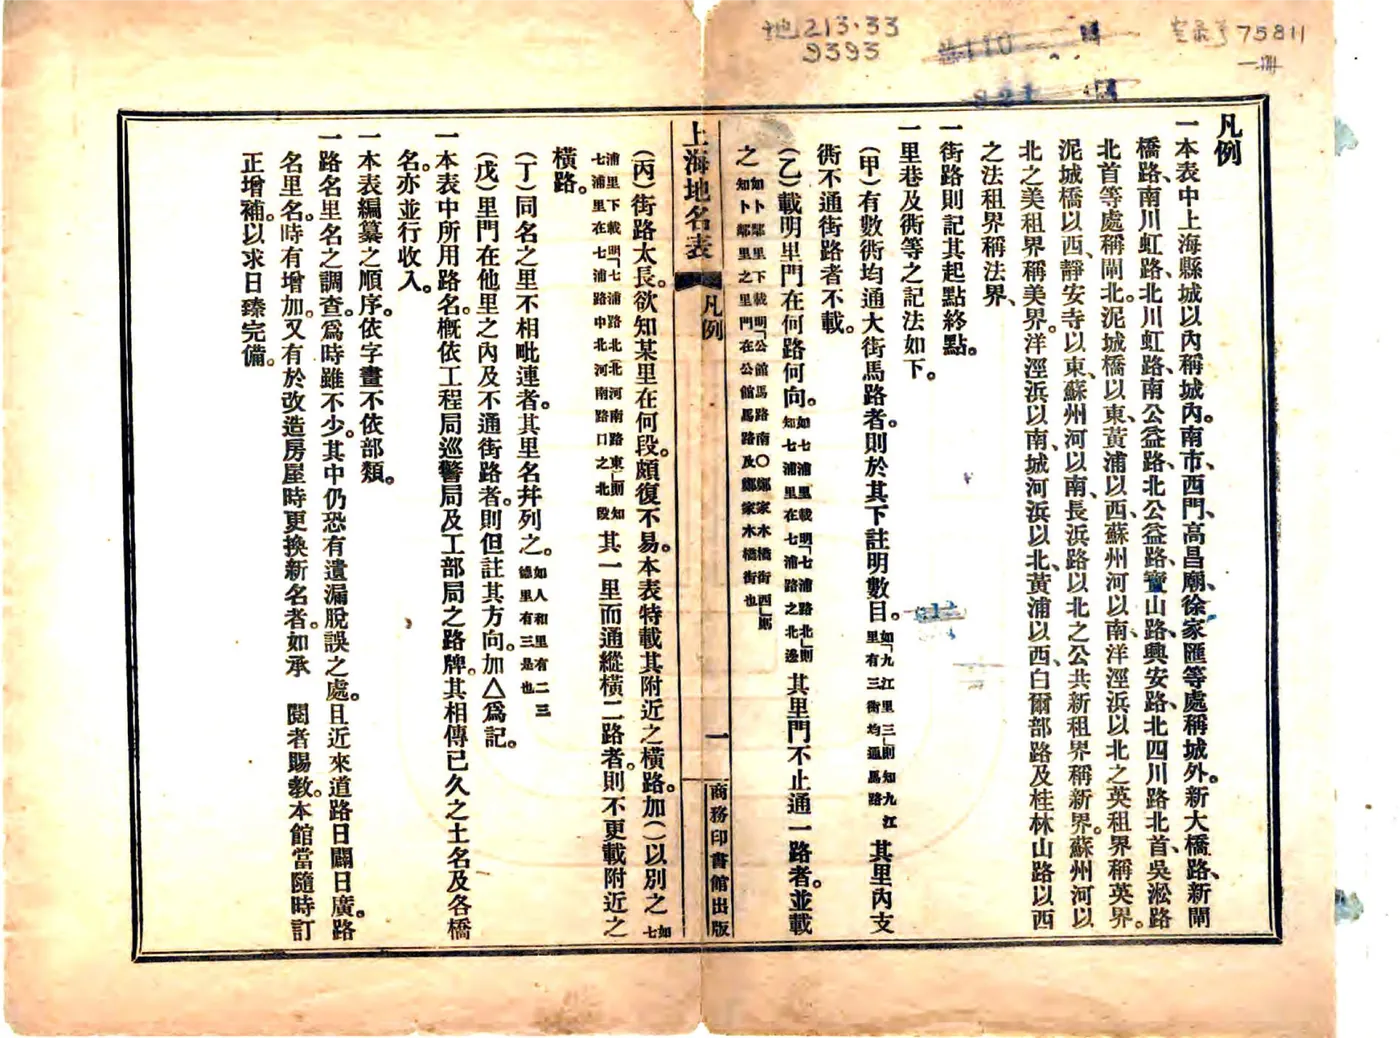 地213.33
9393
登录号75811
一冊
凡例
一本表中上海縣城以內稱城內。南市、西門、高昌廟、徐家匯等處稱城外。新大橋路、新閘
橋路、南川虹路、北川虹路、南公益路、北公益路、寶山路、興安路、北四川路北首、吳淞路
北首等處稱閘北。泥城橋以東、黃浦以西、蘇州河以南、洋涇浜以北之英租界稱英界。
泥城橋以西、靜安寺以東、蘇州河以南、長浜路以北之公共新租界稱新界。蘇州河以
北之美租界稱美界。洋涇浜以南、城河浜以北、黃浦以西、白爾部路及桂林山路以西
之法租界稱法界、
一街路則記其起點終點。
一里巷及衖等之記法如下。
(甲)有數衖均通大街馬路者。則於其下註明數目。如「九江里三」則知九江里有三衖均通馬路其里內支
衖不通街路者不載。
(乙)載明里門在何路何向。如七浦里載明「七浦路北」則知七浦里在七浦路之北邊其里門不止通一路者。並載
之如卜鄰里下載明「公館馬路南〇鄭家木橋街西」則知卜鄰里之里門在公館馬路及鄭家木橋街也
上海地名表 凡例 一 商務印書館出版
(丙)街路太長。欲知某里在何段。頗復不易。本表特載其附近之橫路。加()以別之如七
浦里下載明「七浦路北(北河南路東)」則知七浦里在七浦路中北河南路口之北段其一里而通縱橫二路者。則不更載附近之
橫路。
(丁)同名之里不相毗連者。其里名幷列之。如人和里有二三德里有三是也
(戊)里門在他里之內及不通街路者。則但註其方向。加△爲記。
一本表中所用路名。槪依工程局巡警局及工部局之路牌。其相傳已久之土名及各橋
名。亦並行收入。
一本表編纂之順序。依字畫不依部類。
一路名里名之調查。爲時雖不少。其中仍恐有遺漏脫誤之處。且近來道路日闢日廣。路
名里名。時有增加。又有於改造房屋時更換新名者。如承　閱者賜教。本館當隨時訂
正增補。以求日臻完備。